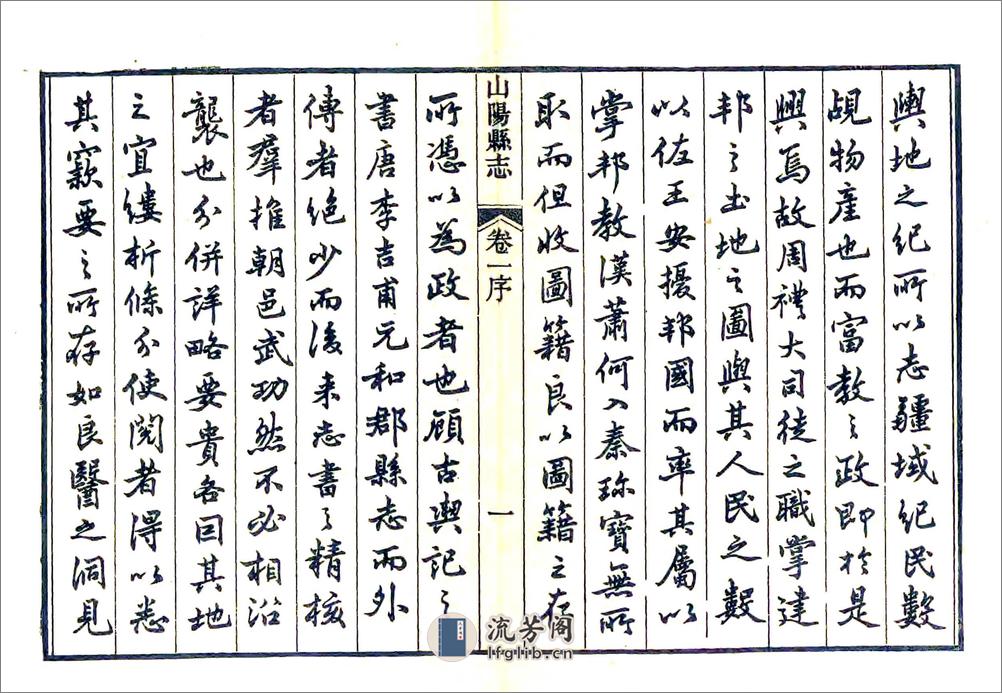 輿地之紀所以志疆域紀民數
覘物產也而富教之政即於是
興焉故周禮大司徒之職掌建
邦之土地之圖與其人民之數
以佐王安擾邦國而率其屬以
掌邦教漢蕭何入秦珍寶無所
取而但收圖籍良以圖籍之存
山陽縣志
卷一序
一
所憑以為政者也顧古輿記之
書唐李吉甫元和郡縣志而外
傳者絕少而後來志書之精核
者羣推朝邑武功然不必相沿
襲也分併詳略要貴各因其地
之宜縷析條分使閱者得以悉
其窾要之所存如良醫之洞見
流芳阁
lfglib.cn